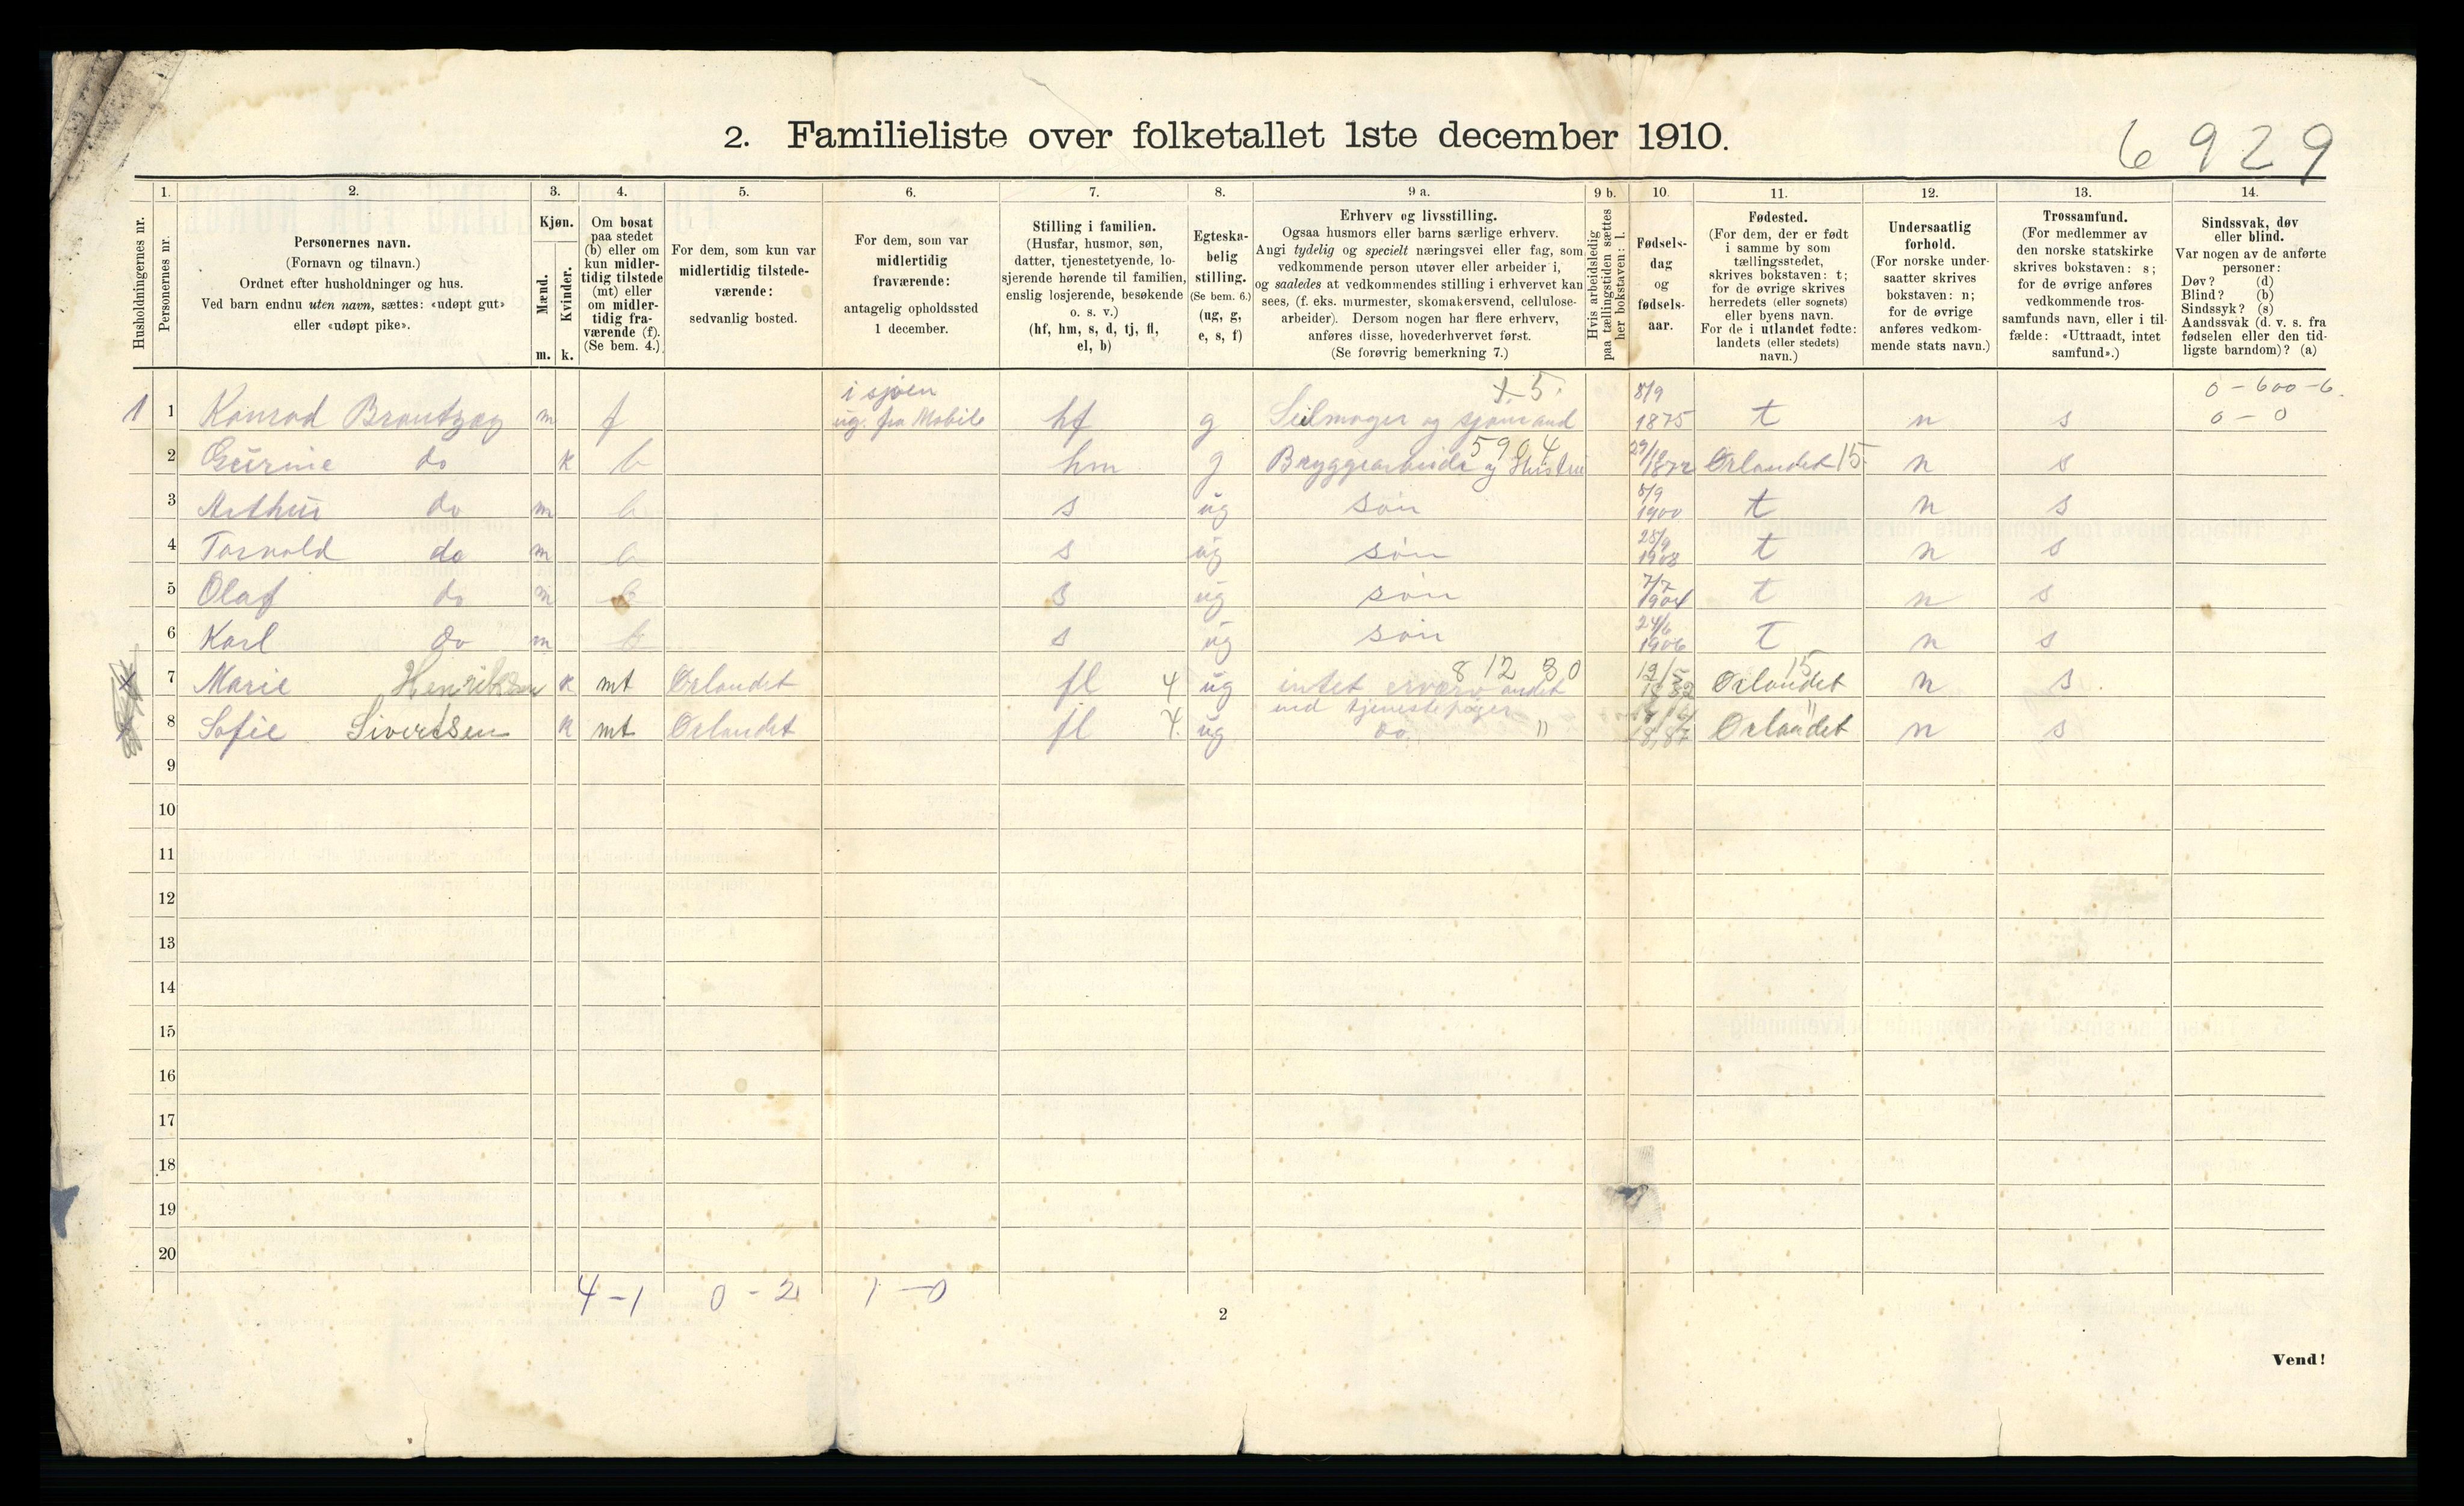 2. Familieliste over folketallet 1ste december 1910.
6 929
Husholdningernes nr.
1.
Personernes nr.
2.
Personernes navn.
(Fornavn og tilnavn.)
Ordnet efter husholdninger og hus.
Ved barn endnu uten navn, sættes: «udøpt gut»
eller «udøpt pike».
3.
Kjøn.
Mænd.
Kvinder.
m. k.
4.
Om bosat
paa stedet
(b) eller om
kun midler-
tidig tilstede
(mt) eller
om midler-
tidig fra-
værende (f).
(Se bem. 4.)
5.
For dem, som kun var
midlertidig tilstede-
værende:
sedvanlig bosted.
6.
For dem, som var
midlertidig
fraværende:
antagelig opholdssted
1 december.
7.
Stilling i familien.
(Husfar, husmor, søn,
datter, tjenestetyende, lo-
sjerende hørende til familien,
enslig losjerende, besøkende
o. s. v.)
(hf, hm, s, d, tj, fl,
el, b)
8.
Egteska-
belig
stilling.
(Se bem. 6.)
(ug, g,
e, s, f)
9 a.
Erhverv og livsstilling.
Ogsaa husmors eller barns særlige erhverv.
Angi tydelig og specielt næringsvei eller fag, som
vedkommende person utøver eller arbeider i,
og saaledes at vedkommendes stilling i erhvervet kan
sees, (f. eks. murmester, skomakersvend, cellulose-
arbeider). Dersom nogen har flere erhverv,
anføres disse, hovederhvervet først.
(Se forøvrig bemerkning 7.)
9 b.
Hvis arbeidsledig
paa tællingstiden sættes
her bokstaven: l.
10.
Fødsels-
dag
og
fødsels-
aar.
11.
Fødested.
(For dem, der er født
i samme by som
tællingsstedet,
skrives bokstaven: t;
for de øvrige skrives
herredets (eller sognets)
eller byens navn.
For de i utlandet fødte:
landets (eller stedets)
navn.)
12.
Undersaatlig
forhold.
(For norske under-
saatter skrives
bokstaven: n;
for de øvrige
anføres vedkom-
mende stats navn.)
13.
Trossamfund.
(For medlemmer av
den norske statskirke
skrives bokstaven: s;
for de øvrige anføres
vedkommende tros-
samfunds navn, eller i til-
fælde: «Uttraadt, intet
samfund».)
14.
Sindssvak, døv
eller blind.
Var nogen av de anførte
personer:
Døv? (d)
Blind? (b)
Sindssyk? (s)
Aandssvak (d. v. s. fra
fødselen eller den tid-
ligste barndom)? (a)
i sjøen 5. 8/9 0 - 600 - 6.
1 1 Konrad Brantzæg m f ug. fra Mobile hf g Seilmager og sjømand 1875 t n s 0 - 0
5904 29/10
2 Gurine do k b hm g Bryggearbeide og Hustru 1872 Ørlandet 15 n s
8/9
3 Arthur do m b s ug søn 1900 t n s
4 Torvald do m b s ug søn 1908 t n s
7/7
5 Olaf do m b s ug søn 1904 t n s
24/6
6 Karl do m b s ug søn 1906 t n s
8 12 30 12/5 15
7 Marie Henriksen k mt Ørlandet fl 4 ug intet erværv andet 1882 Ørlandet n s
end tjenestepiger "
8 Sofie Sivertsen k mt Ørlandet fl 4. ug do " 1887 Ørlandet n s
9
10
11
12
13
14
15
16
17
18
19
20
4 - 1 0 - 2 1 - 0
2
Vend!